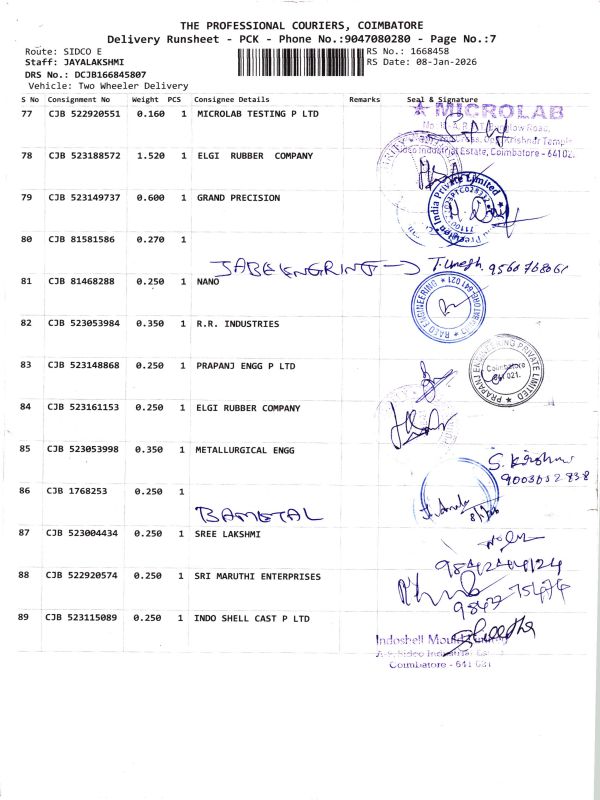 THE PROFESSIONAL COURIERS, COIMBATORE
Delivery Runsheet - PCK - Phone No.:9047080280 - Page No.:7
Route: SIDCO E
RS No.: 1668458
Staff: JAYALAKSHMI
RS Date: 08-Jan-2026
DRS No.: DCJB166845807
Vehicle: Two Wheeler Delivery
S No Consignment No Weight PCS Consignee Details Remarks Seal & Signature
77 CJB 522920551 0.160 1 MICROLAB TESTING P LTD
MICROLAB
Industrial Estate, Coimbatore - 641 021.
78 CJB 523188572 1.520 1 ELGI RUBBER COMPANY
79 CJB 523149737 0.600 1 GRAND PRECISION
India Private Limited
80 CJB 81581586 0.270 1
JABEENGRING → T. Umesh 9560768061
81 CJB 81468288 0.250 1 NANO
ENGINEERING
COIMBATORE-641 021
82 CJB 523053984 0.350 1 R.R. INDUSTRIES
83 CJB 523148868 0.250 1 PRAPANJ ENGG P LTD
PRAPANJ ENGINEERING PRIVATE LIMITED
Coimbatore
021.
84 CJB 523161153 0.250 1 ELGI RUBBER COMPANY
85 CJB 523053998 0.350 1 METALLURGICAL ENGG
86 CJB 1768253 0.250 1
BAMETAL
87 CJB 523004434 0.250 1 SREE LAKSHMI
88 CJB 522920574 0.250 1 SRI MARUTHI ENTERPRISES
89 CJB 523115089 0.250 1 INDO SHELL CAST P LTD
Indoshell
Coimbatore - 641 021